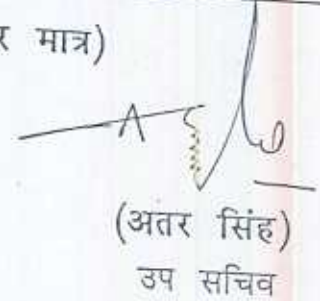 र मात्र)
(अतर सिंह)
उप सचिव